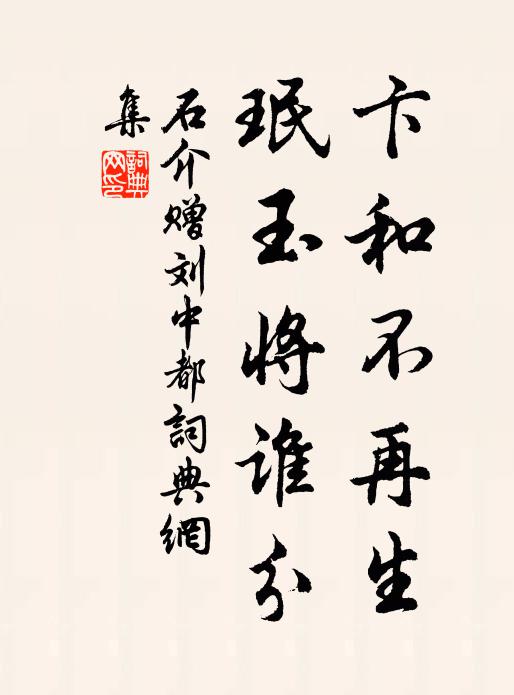 卞和不再生
珉玉将谁分
石介赠刘中都詞典網
集
詞典
网印